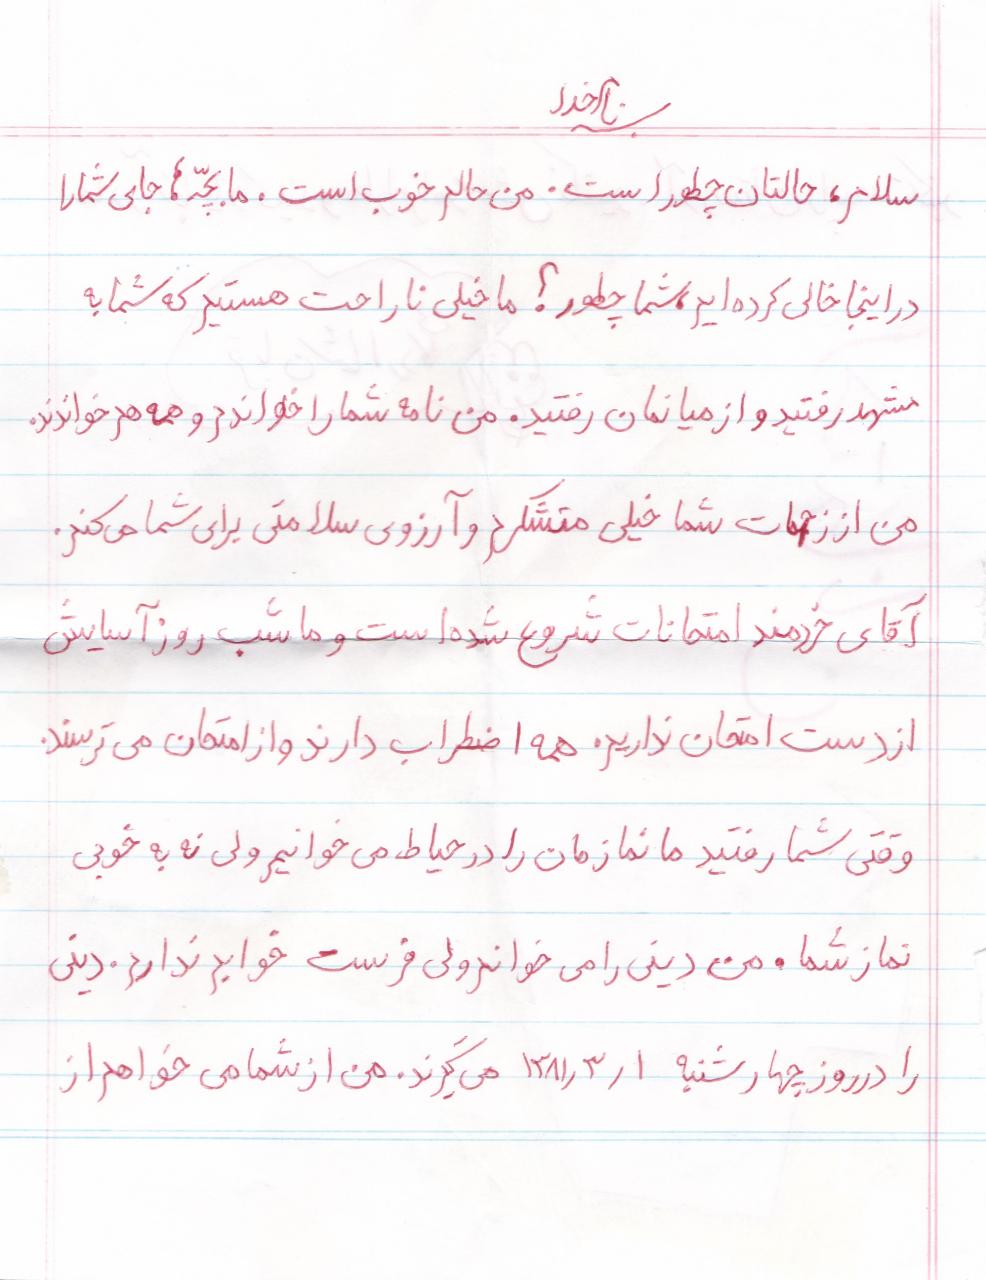 بنام خدا
سلام، حالتان چطور است. من حالم خوب است. ما بچّه ها جای شما را
در اینجا خالی کرده ایم، شما چطور؟ ما خیلی ناراحت هستیم که شما به
مشهد رفتید و از میانمان رفتید. من نامه شما را خواندم و همه هم خواندند.
من از زحمات شما خیلی متشکرم و آرزوی سلامتی برای شما می کنم.
آقای خردمند امتحانات شروع شده است و ما شب روز آسایش
از دست امتحان نداریم. همه اضطراب دارند و از امتحان می ترسند.
وقتی شما رفتید ما نمازمان را در حیاط می خوانیم ولی نه به خوبی
نماز شما. من دینی را می خوانم ولی فرست خوابم ندارم. دینی
را در روز چهار شنبه ۱ ر ۳ ر ۱۳۸۱ می گیرند. من از شما می خواهم از